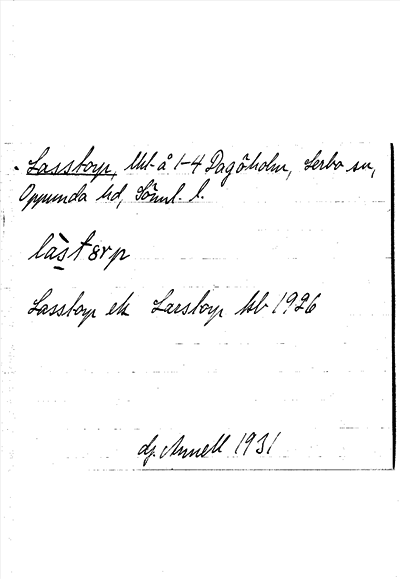 Lasstorp, Utt å 1-4 Dagöholm, Lerbo sn,
Oppunda hd, Söml. l.
làstərp
Lasstorp ek Larstorp kb 1926
dj. Annell 1931